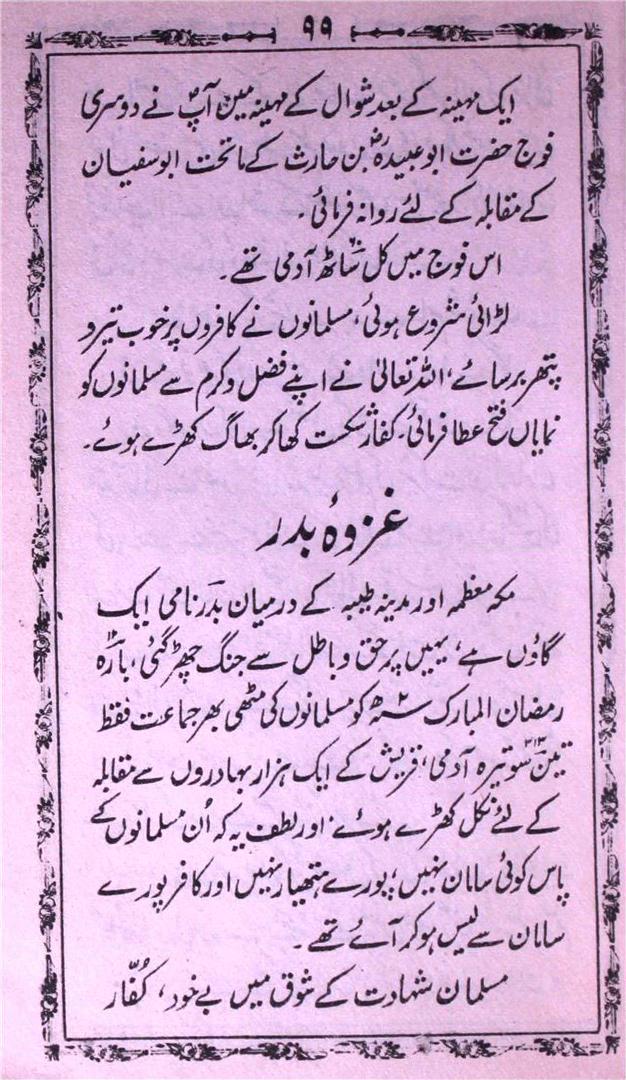 ۹۹
ایک مہینہ کے بعد شوال کے مہینہ میں آپؐ نے دوسری
فوج حضرت ابو عبیدہؓ بن حارث کے ماتحت ابوسفیان
کے مقابلہ کے لئے روانہ فرمائی۔
اس فوج میں کل ساٹھ ۶۰ آدمی تھے۔
لڑائی شروع ہوئی، مسلمانوں نے کافروں پر خوب تیر و
پتھر برسائے، اللہ تعالیٰ نے اپنے فضل و کرم سے مسلمانوں کو
نمایاں فتح عطا فرمائی۔ کفار شکست کھا کر بھاگ کھڑے ہوئے۔
غزوۂ بدر
مکہ معظمہ اور مدینہ طیبہ کے درمیان بدر نامی ایک
گاؤں ہے، یہیں پر حق و باطل سے جنگ چھڑ گئی، بارہ ۱۲
رمضان المبارک ۲ھ کو مسلمانوں کی مٹھی بھر جماعت فقط
تین سو تیرہ ۳۱۳ آدمی، قریش کے ایک ہزار بہادروں سے مقابلہ
کے لئے نکل کھڑے ہوئے۔ اور لطف یہ کہ اُن مسلمانوں کے
پاس کوئی سامان نہیں، پورے ہتھیار نہیں اور کافر پورے
سامان سے لیس ہو کر آئے تھے۔
مسلمان شہادت کے شوق میں بے خود، کُفّار